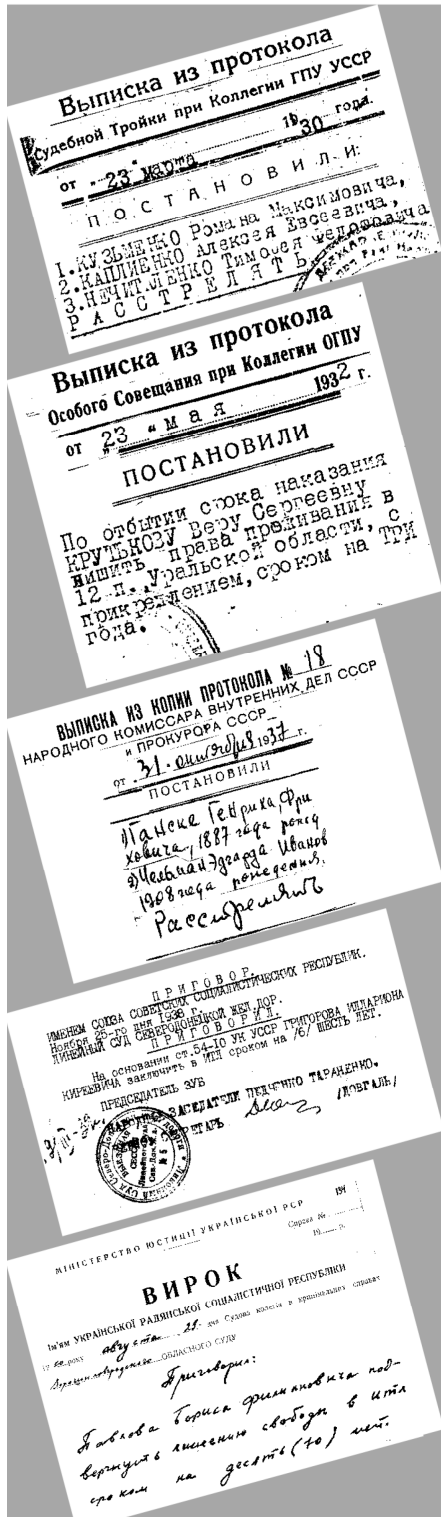 Выписка из протокола
Судебной Тройки при Коллегии ГПУ УССР
от "23" марта 1930 года.
ПОСТАНОВИЛИ:
1. КУЗЬМЕНКО Романа Максимовича,
2. КАПЛИЕНКО Алексея Евсеевича,
3. НЕЧИТАЛЕНКО Тимофея Федотовича
РАССТРЕЛЯТЬ
Выписка из протокола
Особого Совещания при Коллегии ОГПУ
от "23" мая 1932 г.
ПОСТАНОВИЛИ
По отбытии срока наказания
Веру Сергеевну
лишить права проживания в
12 п., Уральской области, с
прикреплением, сроком на ТРИ
года.
ВЫПИСКА ИЗ КОПИИ ПРОТОКОЛА № 18
НАРОДНОГО КОМИССАРА ВНУТРЕННИХ ДЕЛ СССР
и ПРОКУРОРА СССР
от 31 октября 1937 г.
ПОСТАНОВИЛИ
1) Ганске Генриха, Фри
ховича, 1887 года рожд
2) Чельман Эдгарда Иванов
1908 года рождения.
Расстрелять
ПРИГОВОР.
ИМЕНЕМ СОЮЗА СОВЕТСКИХ СОЦИАЛИСТИЧЕСКИХ РЕСПУБЛИК.
Ноября 25-го дня 1938 г.
ЛИНЕЙНЫЙ СУД СЕВЕРОДОНЕЦКОЙ ЖЕЛ.ДОР.
ПРИГОВОРИЛ.
На основании ст.54-10 УК УССР ГРИГОРОВА ИЛЛАРИОНА
КИРЕЕВИЧА заключить в ИТЛ сроком на /6/ ШЕСТЬ ЛЕТ.
ПРЕДСЕДАТЕЛЬ ЗУБ
ЗАСЕДАТЕЛИ ПЕДЧЕНКО ТАРАНЕНКО.
/ДОВГАЛЬ/
МІНІСТЕРСТВО ЮСТИЦІЇ УКРАЇНСЬКОЇ РСР
Справа №
19 р.
ВИРОК
Ім'ям УКРАЇНСЬКОЇ РАДЯНСЬКОЇ СОЦІАЛІСТИЧНОЇ РЕСПУБЛІКИ
року августа 25 дня Судова колегія в кримінальних справах
Ворошиловградского ОБЛАСНОГО СУДУ
Приговорил:
Павлова Бориса Филипповича под-
вергнуть лишению свободы в ИТЛ
сроком на десять (10) лет.